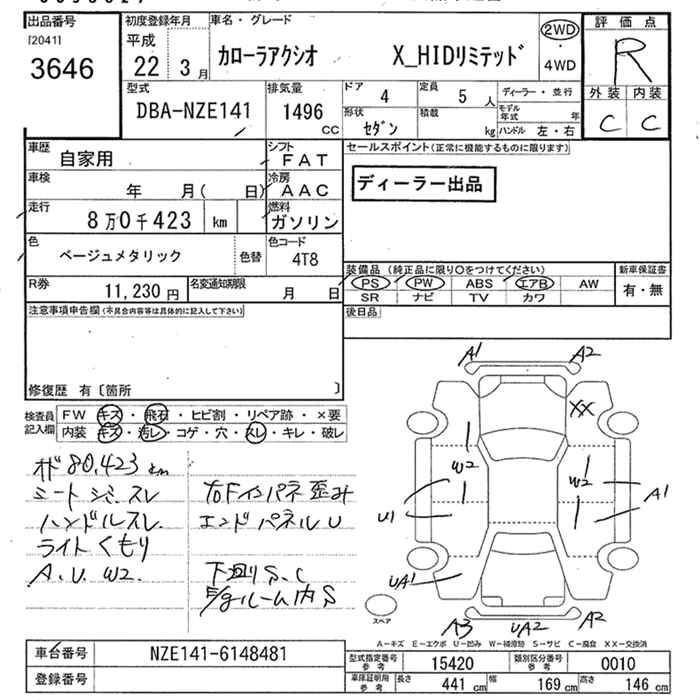 出品番号
[2041]
3646
初度登録年月
平成
22 3月
車名・グレード
カローラアクシオ X_HIDリミテッド
2WD
4WD
評価点
R
外装 内装
C C
型式
DBA-NZE141
排気量
1496
CC
ドア
4
定員
5人
形状
セダン
積載
kg
ディーラー・並行
モデル年式 年
ハンドル 左・右
車歴
自家用
シフト
FAT
車検
年 月( 日)
冷房
AAC
走行
8万0千423 km
燃料
ガソリン
色
ベージュメタリック
色替
色コード
4T8
R券
11,230円
名変通知期限
月 日
セールスポイント(正常に機能するものに限ります)
ディーラー出品
装備品(純正品に限り○をつけてください)
PS PW ABS エアB AW
SR ナビ TV カワ
新車保証書
有・無
後日品
注意事項申告欄(※具合内容等は具体的に記入して下さい)
修復歴 有〔箇所 〕
検査員記入欄
FW キズ・飛石・ヒビ割・リペア跡・×要
内装 キズ・汚レ・コゲ・穴・スレ・キレ・破レ
オド80,423km
シートシミ.スレ
ハンドルスレ
ライトくもり
A.U.W2.
右Fインパネ歪み
エンドパネルU
下廻りS.C
E/gルーム内S
A1 A2
XX
W2
W2
U1
A1
UA1
A3 UA2 A2
スペア
A－キズ E－エクボ U－凹み W－補修跡 S－サビ C－腐食 XX－交換済
車台番号
NZE141-6148481
登録番号
型式指定番号 参考
15420
類別区分番号 参考
0010
車庫証明用 参考
長さ 441cm
幅 169cm
高さ 146cm